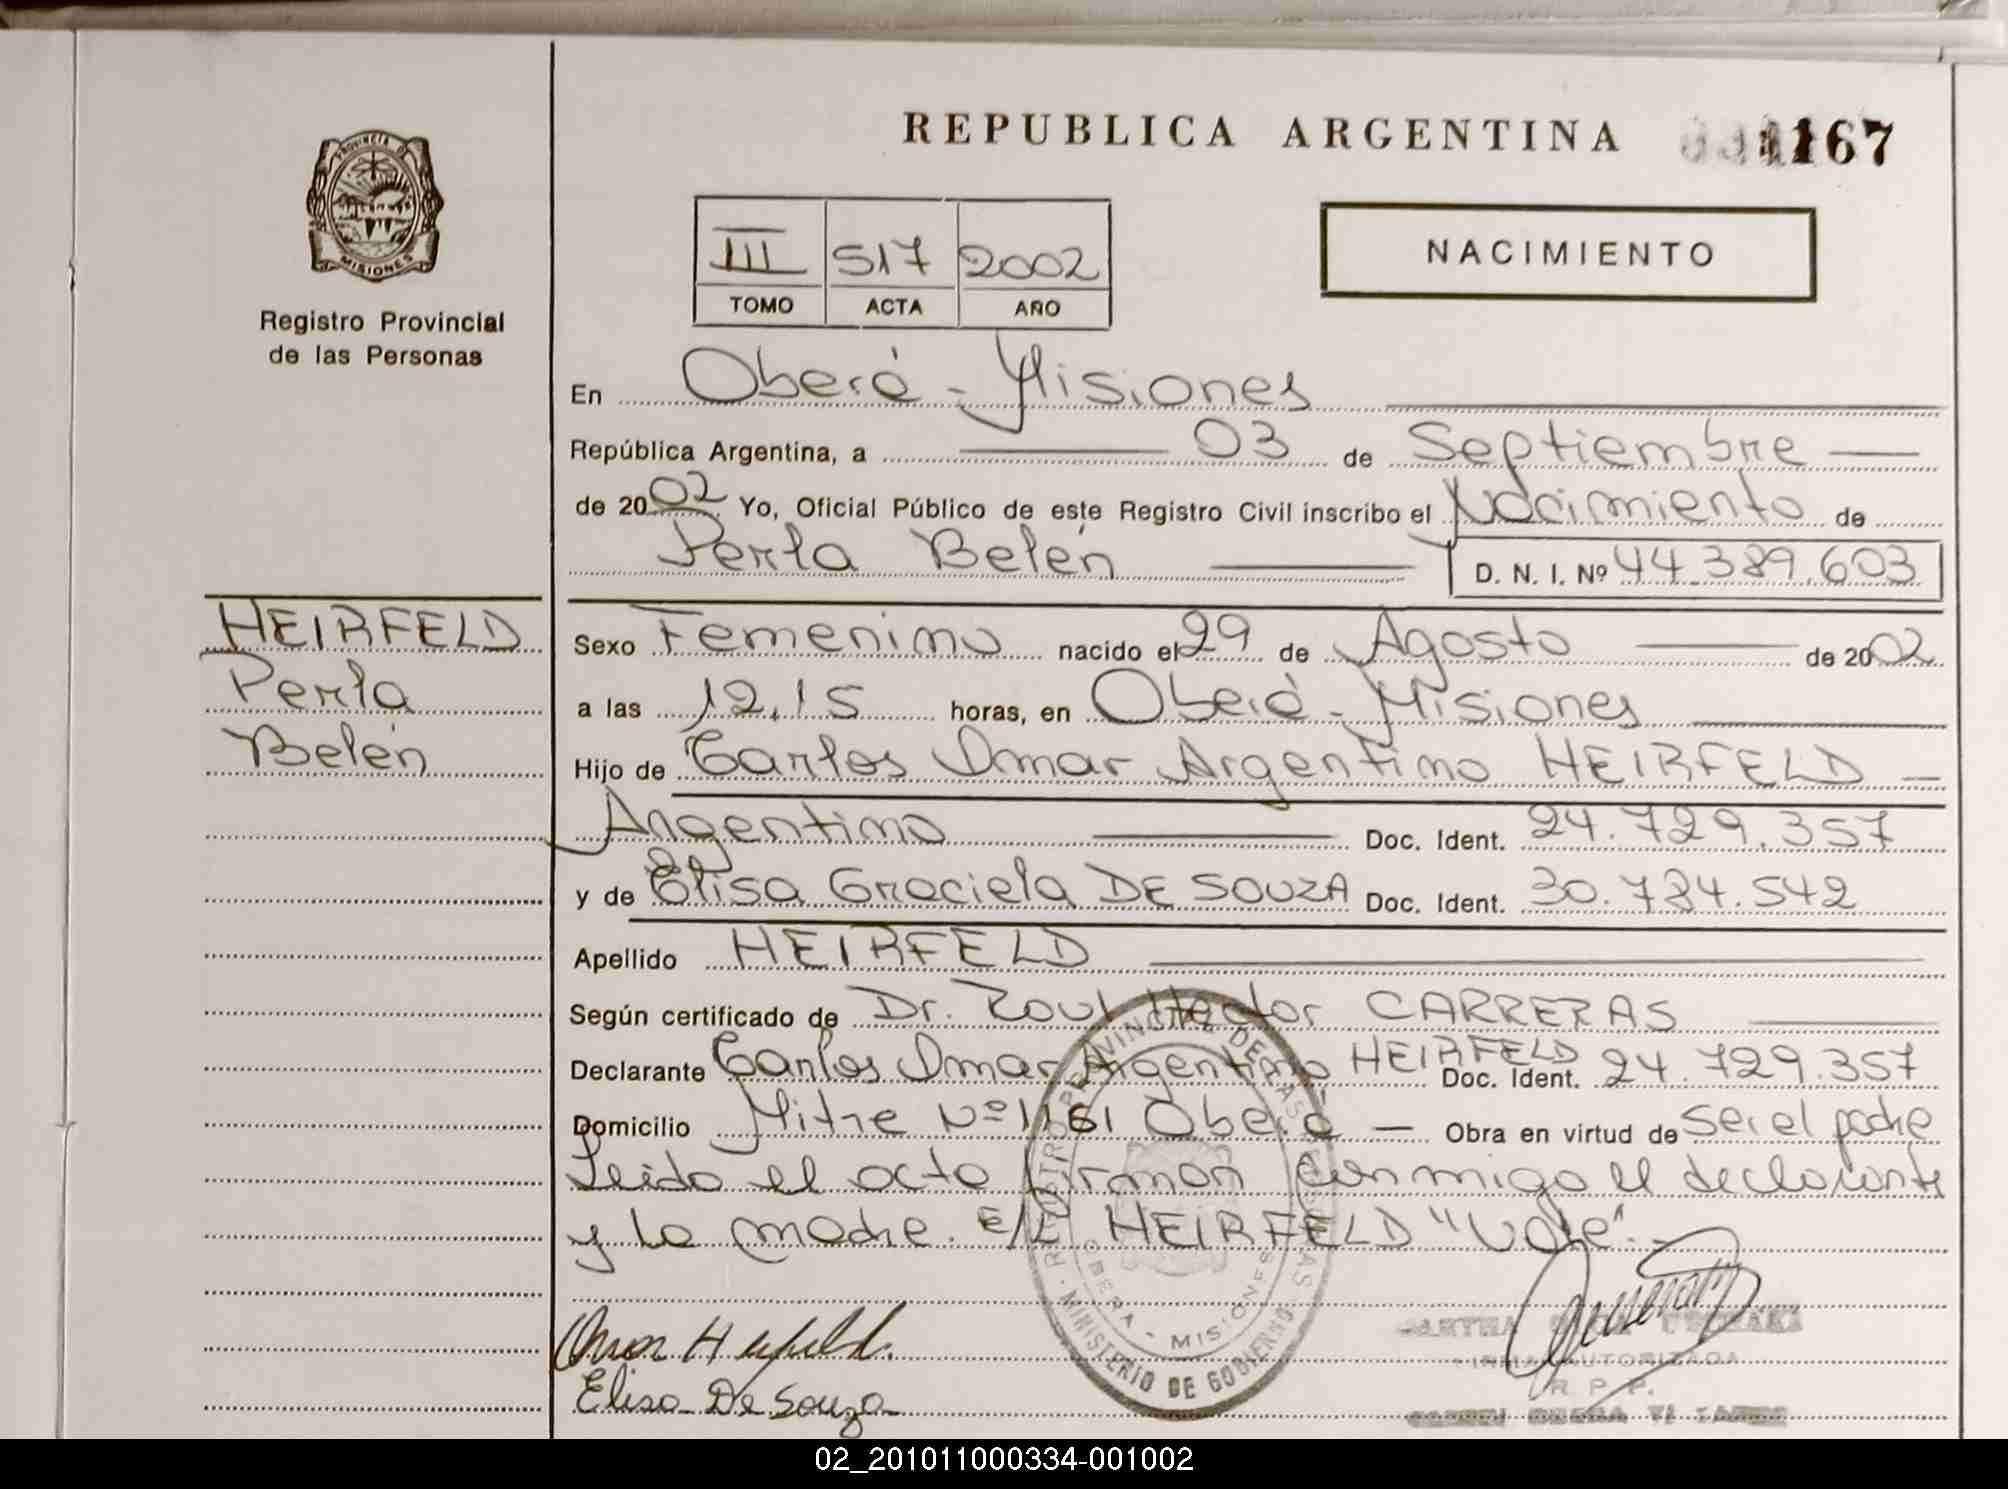 REPUBLICA ARGENTINA 167
PROVINCIA DE
MISIONES
Registro Provincial
de las Personas
NACIMIENTO
III 517 2002
TOMO ACTA AÑO
En Oberá - Misiones
República Argentina, a 03 de Septiembre
de 2002 Yo, Oficial Público de este Registro Civil inscribo el Nacimiento de
Perla Belén D. N. I. Nº 44.389.603
HEIRFELD
Perla
Belén
Sexo Femenino nacido el 29 de Agosto de 2002
a las 12,15 horas, en Oberá - Misiones
Hijo de Carlos Omar Argentino HEIRFELD
Argentino Doc. Ident. 24.729.357
y de Elisa Graciela DE SOUZA Doc. Ident. 30.784.542
Apellido HEIRFELD
Según certificado de Dr. Raul Hector CARRERAS
Declarante Carlos Omar Argentino HEIRFELD Doc. Ident. 24.729.357
Domicilio Mitre Nº 1161 Oberá - Obra en virtud de ser el padre
Leido el acta firman conmigo el declarante
y la madre. E/L HEIRFELD "Vale".-
REGISTRO PROVINCIAL DE LAS PERSONAS
OBERA - MISIONES
MINISTERIO DE GOBIERNO
Omar Heirfeld.
Elisa De Souza
AUTORIZADA
R. P. P.
02_201011000334-001002